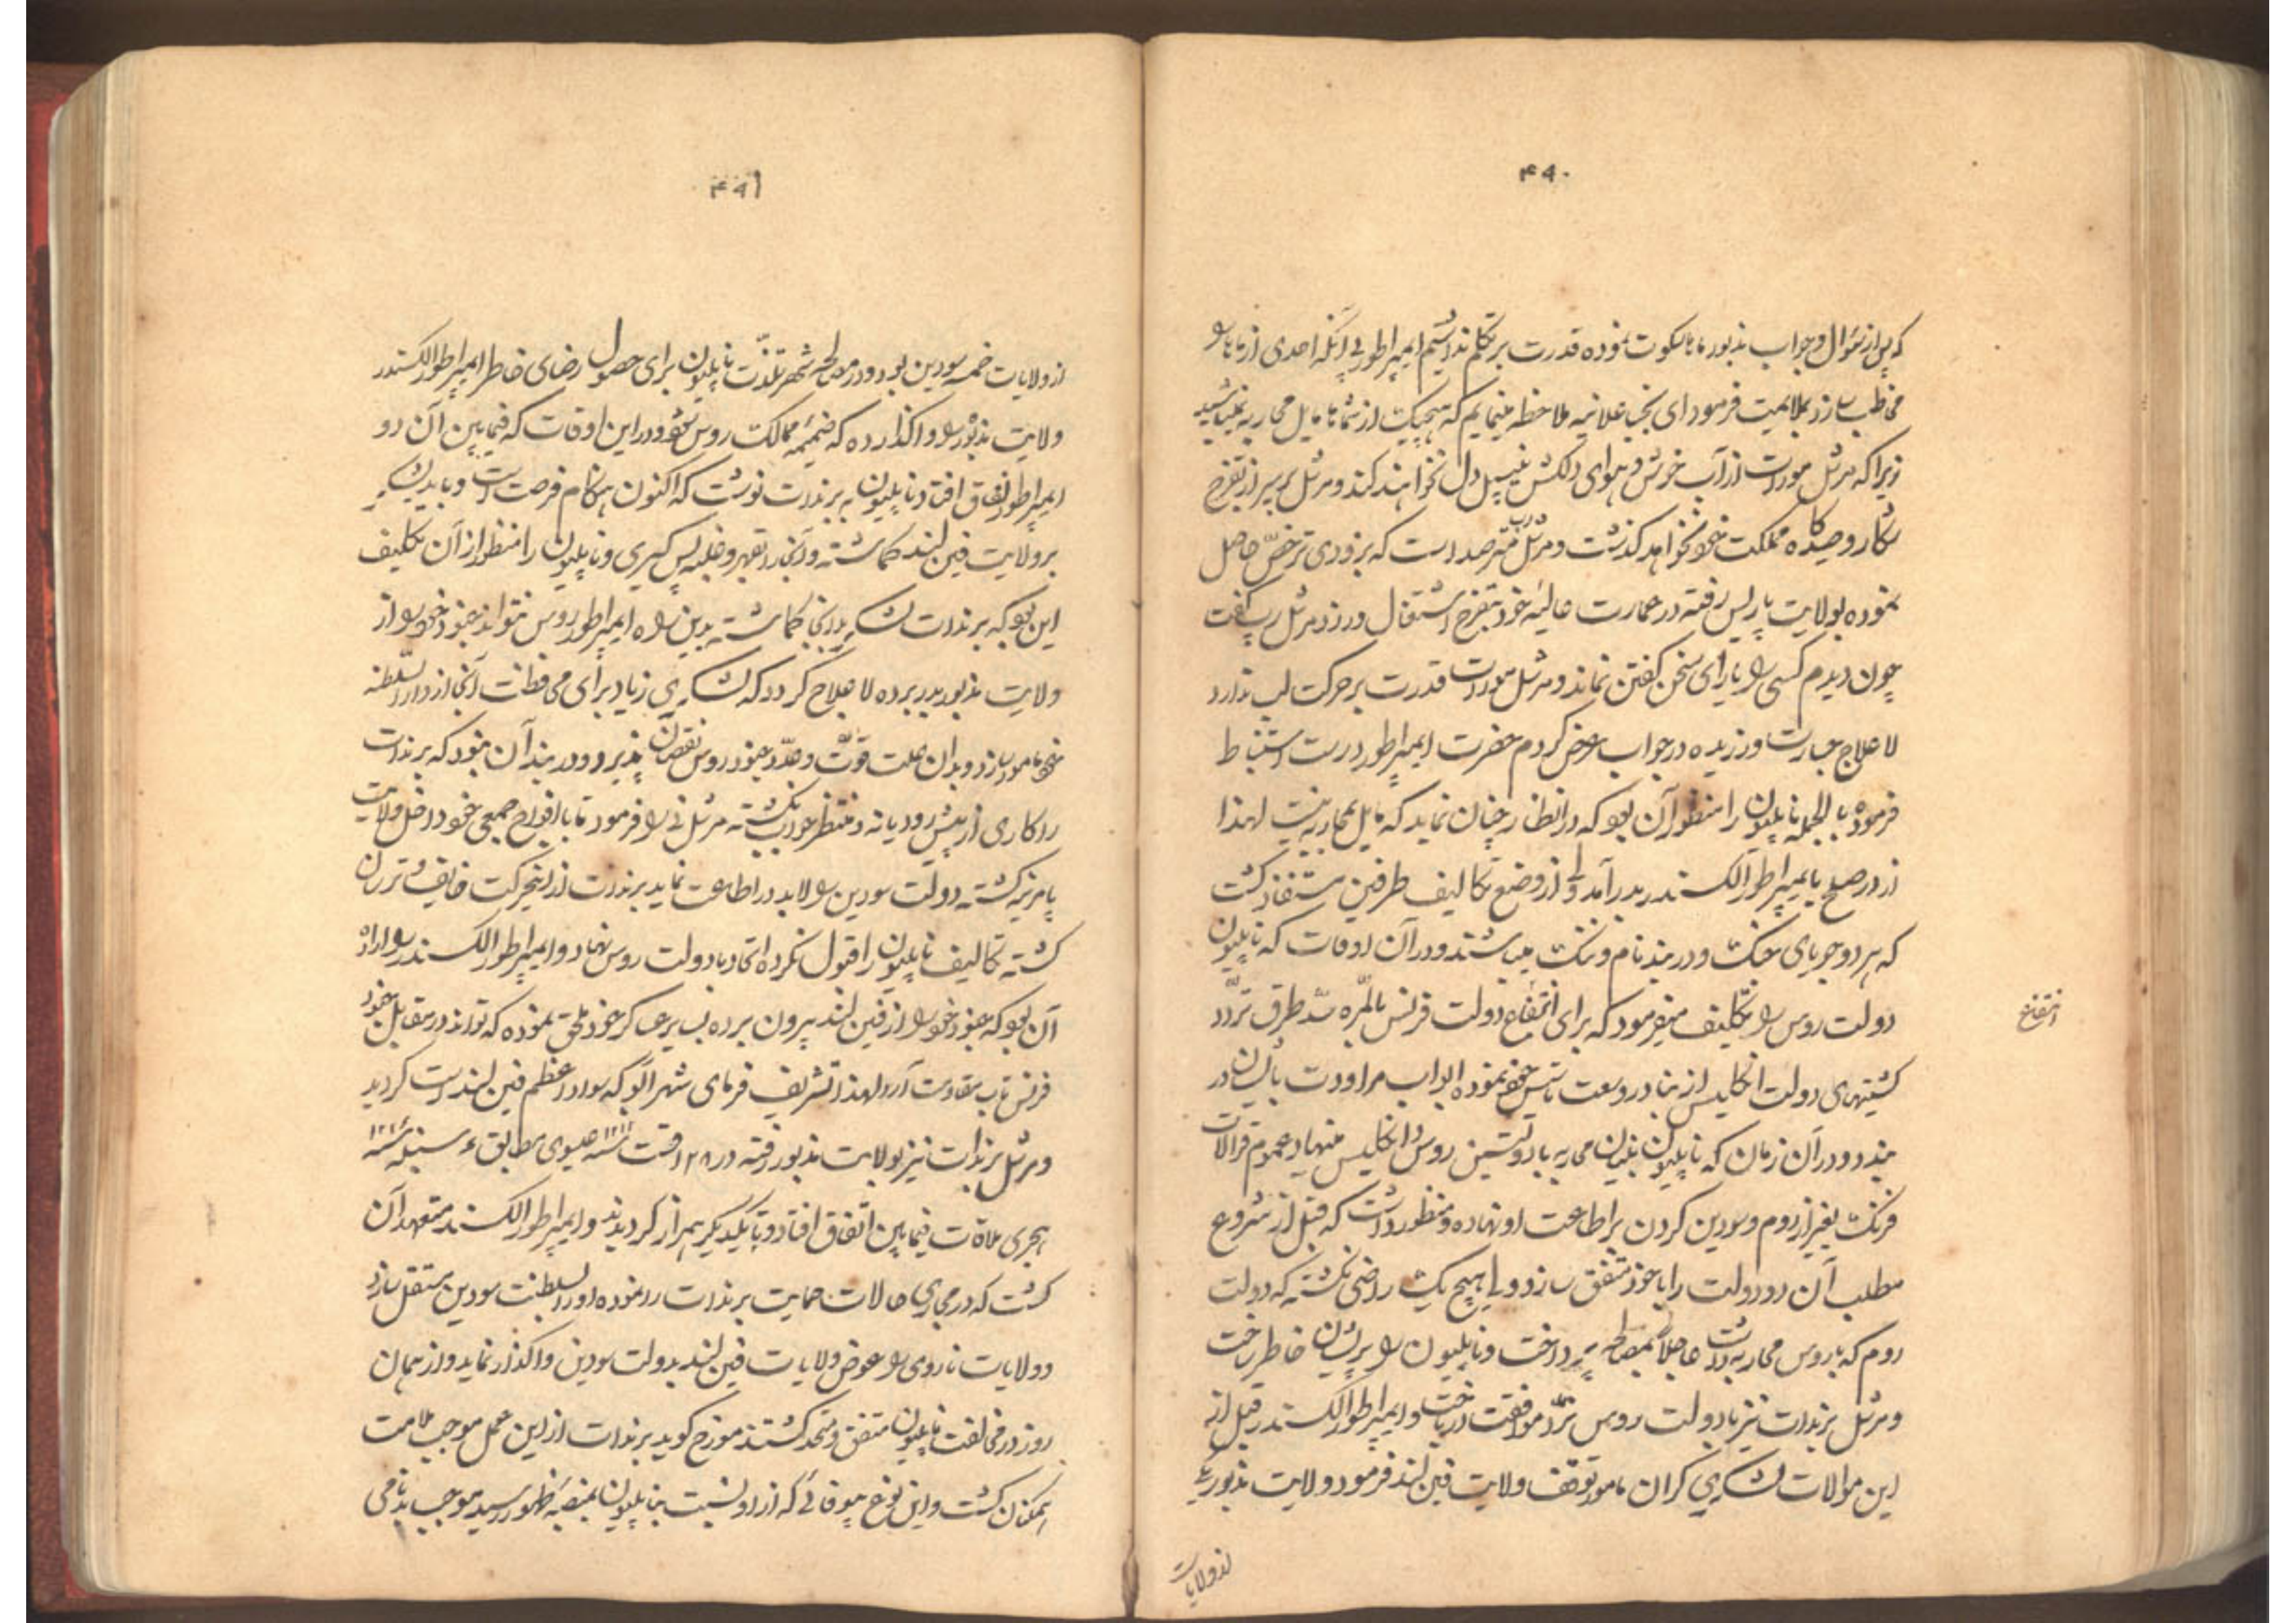 ۴۹۰
که پس از سؤال و جواب مذبور ما ها سکوت نموده قدرت بر تکلم نداشتیم ایمپراطور بی آنکه احدی از ما ها را
مخاطب سازد بملایمت فرمود ای نجبا علانیه ملاحظه مینمایم که هیچیک از شما ها مایل محاربه نمیباشید
زیرا که مرشل مورات از آب خوش و هوای دلکش نیپل دل نخواهند کند و مرشل از تفرج
شکار و صیدگاه مملکت خود نخواهد گذشت و مرشل مترصد است که بزودی ترخص حاصل
نموده بولایت پاریس رفته در عمارت عالیهٔ خود بتفرج اشتغال ورزد مرشل رپ گفت
چون دیدم کسی را یارای سخن گفتن نماند و مرشل مورات قدرت بر حرکت لب ندارد
لاعلاج جسارت ورزیده در جواب عرض کردم حضرت ایمپراطور درست استنباط
فرموده بالجمله ناپلیون را منظور آن بود که در انظار چنان نماید که مایل بمحاربه نیست لهذا
از در صلح با ایمپراطور الکسندر بدر آمد ولی از وضع تکالیف طرفین مستفاد گشت
که هر دو جویای جنگ و در بند نام و ننگ میباشند و در آن اوقات که ناپلیون
دولت روس را تکلیف میفرمود که برای انتفاع دولت فرنس بالمره سد طرق تردد
انتفاع
کشتیهای دولت انگلیس از بنادر وسعت خود نموده ابواب مراودت بایشان در
بندد و در آن زمان که ناپلیون بنیان محاربه با دولتین روس و انگلیس مینهاد عموم قرالات
فرنگ بغیر از روم و سودین گردن بر اطاعت او نهاده و منظور داشت که قبل از شروع
مطلب آن دو دولت را با خود متفق سازد ولی هیچ یک راضی نگشته که دولت
روم که با روس محاربه داشت عاجلاً بمصالحه پرداخت و ناپلیون را پریشان خاطر ساخت
و مرشل برندات نیز با دولت روس نرد موافقت در باخت و ایمپراطور الکسندر قبل از
این موالات لشکری گران مامور توقف ولایت فین لند فرمود و ولایت مذبور یکی
از ولایات
۴۹۱
از ولایات خمسه سودین بود و در مصالحه شهر تلذت ناپلیون برای حصول رضای خاطر ایمپراطور الکسندر
ولایت مذبور را واگذارده که ضمیمه ممالک روس شود و در این اوقات که فیما بین آن دو
ایمپراطور نفاق افتاد ناپلیون به برندات نوشت که اکنون هنگام فرصت است و باید لشکر
بر ولایت فین لند گماشته و آنجا را بقهر و غلبه پس گیری و ناپلیون را منظور از آن تکلیف
این بود که برندات لشکر بدانجا گماشته بدین راه ایمپراطور روس نتواند جنود خود را از
ولایت مذبور بدر برده لاعلاج گردد که لشکری زیاد برای محافظت آنجا از دار السلطنه
خود مامور سازد و بدان علت قوت و عدد جنود روس نقصان پذیرد و در بند آن نبود که برندات
را کاری از پیش رود یا نه و منتظر جواب نگشته مرشل نی را فرمود تا با افواج جمعی خود داخل ولایت
پامرنیه گشته دولت سودین را لابد در اطاعت نماید برندات از این حرکت خایف و ترسان
گشته تکالیف ناپلیون را قبول نکرده اتحاد با دولت روس نهاد و ایمپراطور الکسندر را اراده
آن بود که جنود خود را از فین لند بیرون برده بسایر عساکر خود ملحق نموده که تواند در مقابل جنود
فرنس تاب مقاومت آرد لهذا تشریف فرمای شهر آبو که سواد اعظم فین لند است گردید
و مرشل برندات نیز بولایت مذبور رفته در ۲۸ اقست سنه ۱۸۱۲ عیسوی مطابق سنبله سنه
هجری ملاقات فیما بین اتفاق افتاد و با یکدیگر همراز گردیدند و ایمپراطور الکسندر متعهد آن
گشت که در مجاری حالات حمایت برندات را نموده او را بسلطنت سودین مستقل سازد
و ولایات ناروی را عوض ولایات فین لند بدولت سودین واگذار نماید و از همان
روز در مخالفت ناپلیون متفق و متحد گشتند مورخ گوید برندات از این عمل موجب ملامت
همگنان گشت و این نوع بیوفائی که از او نسبت بناپلیون بمنصهٔ ظهور رسید موجب بدنامی